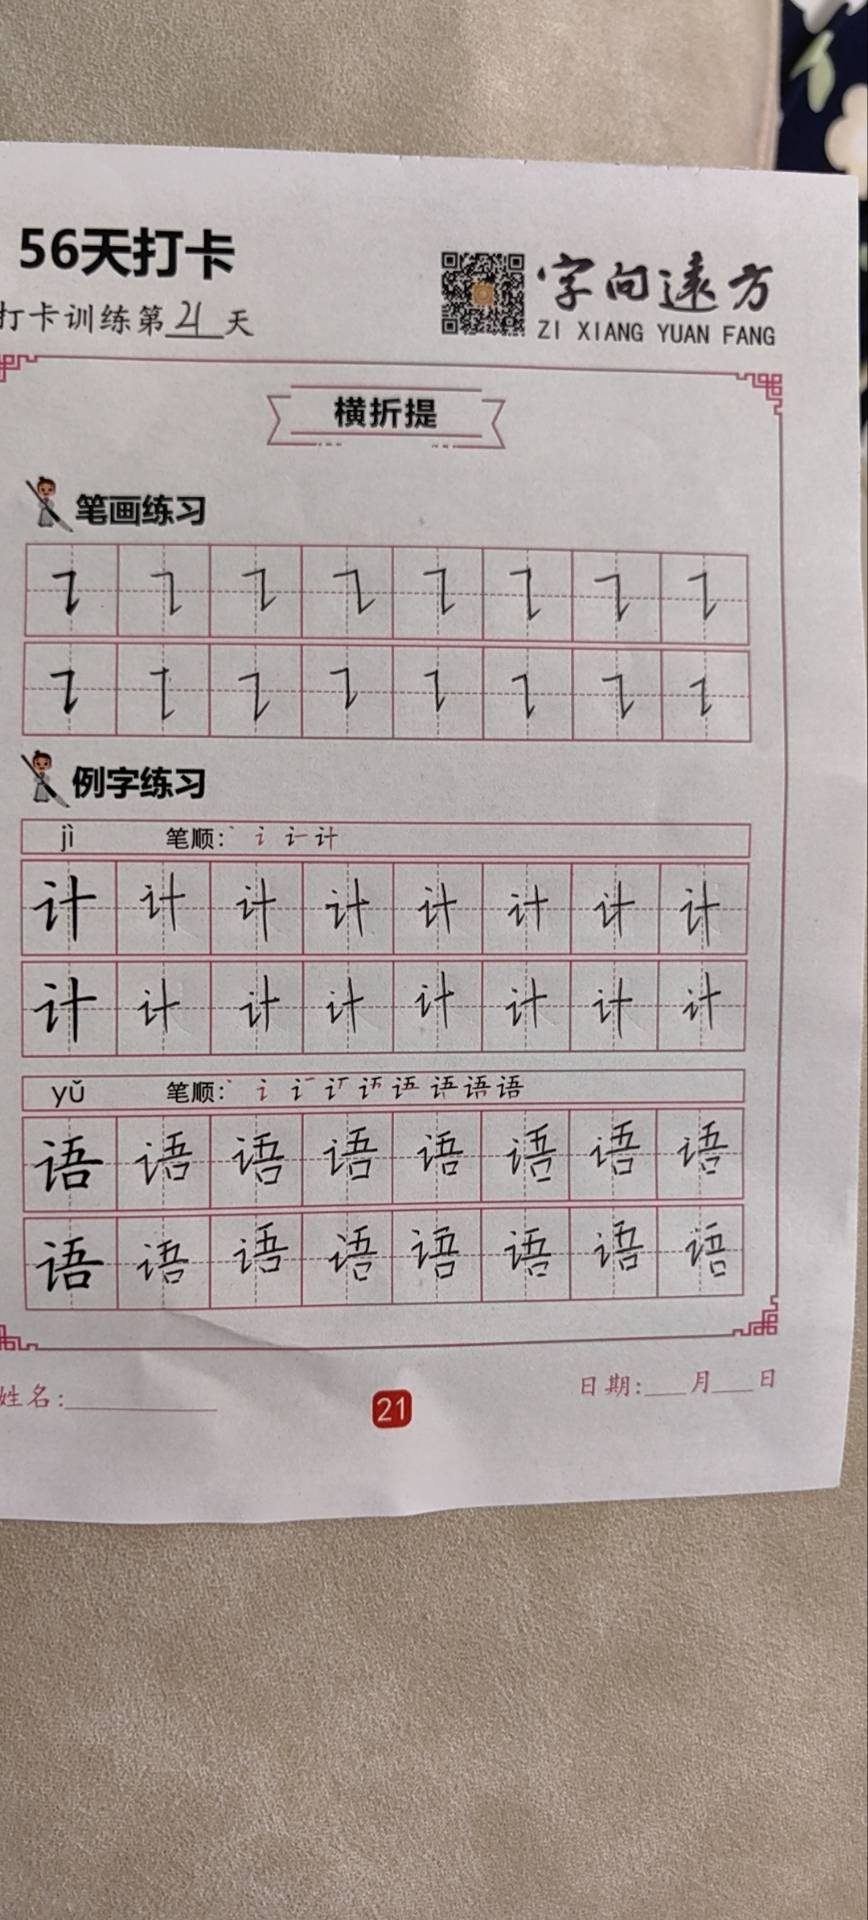 56天打卡
打卡训练第21天
字向远方
ZI XIANG YUAN FANG
横折提
笔画练习
㇊ ㇊ ㇊ ㇊ ㇊ ㇊ ㇊ ㇊
㇊ ㇊ ㇊ ㇊ ㇊ ㇊ ㇊ ㇊
例字练习
jì 笔顺: 丶 讠 计
计 计 计 计 计 计 计 计
计 计 计 计 计 计 计 计
yǔ 笔顺: 丶 讠 语
语 语 语 语 语 语 语 语
语 语 语 语 语 语 语 语
姓名:
21
日期: 月 日